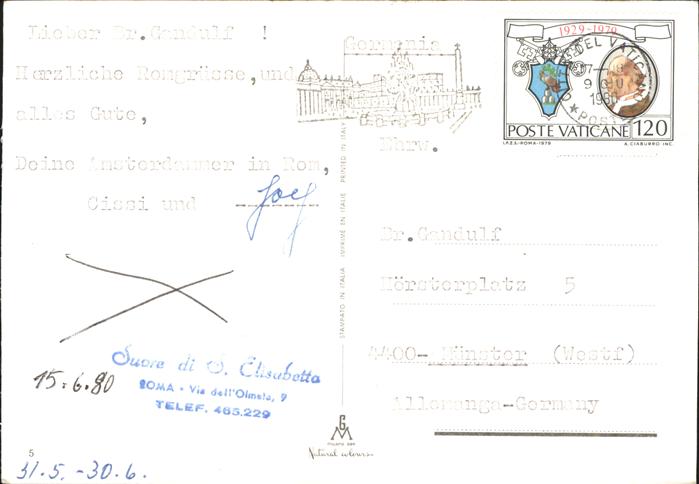 Lieber Br.Gandulf !
Herzliche Romgrüsse, und
alles Gute,
Deine Amsterdammer in Rom,
Cissi und Joef
Suore di S. Elisabetta
ROMA - Via dell'Olmata, 9
TELEF. 465.229
15.6.80
5
31.5. -30.6.
STAMPATO IN ITALIA IMPRIMÉ EN ITALIE PRINTED IN ITALY
GM
MILANO
Natural colours
Germania
1929-1979
DEL VATICANO
9 GIU
1980
POSTE
POSTE VATICANE 120
I.P.Z.S.-ROMA-1979 A. CIABURRO INC.
Ehrw.
Br.Gandulf
Hörsterplatz 5
4400- Münster (Westf)
Allemanga-Germany